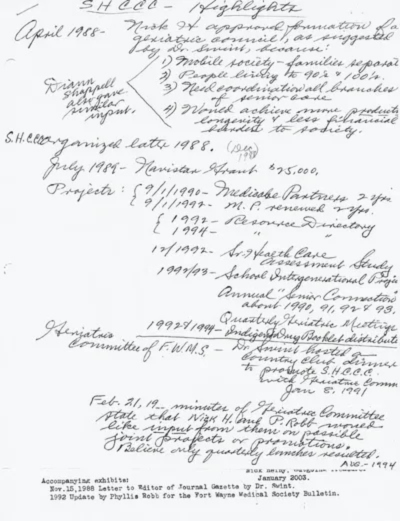 S H C C C - Highlights
April 1988 - Nick H. approval formation of a
geriatric council, as suggested
by Dr. Swint, because:
1) Mobile society - families separat
2) People living to 90's & 100's.
3) Need coordination all branches
of senior care
4) Would achieve more producti
longevity & less financial
burden to society.
Diann
Shappell
also gave
similar
input.
S.H.CCC organized late 1988. (Dec 1988)
July 1989 - Navistar Grant $25,000.
Projects: { 9/1/1990 - Medicabe Partners 2 yrs
{ 9/1/1992 - M.P. renewed 2 yrs.
{ 1992 - Resource Directory
{ 1994 - " "
12/1992 - Sr. Health Care
Assessment Study
1992/93 - School Intergenerational Proje
Annual "Senior Connection"
about 1990, 91, 92 & 93.
Quarterly Geriatric Meetings
1992 & 1994 - Indigent Drug Booklet distribute
Geriatric
Committee of F.W.M.S. - Dr. Swint hosted a
country club dinner
to promote S.H.C.C.C.
with Geriatric Comm
Jan 8, 1991
Feb. 21, 19 minutes of Geriatric Committee
state that Nick H. and P. Robb would
like input from them on possible
joint projects or promotions.
Believe only quarterly lunches resulted.
Aug - 1994
January 2003.
Accompanying exhibits:
Nov.15,1988 Letter to Editor of Journal Gazette by Dr. Swint.
1992 Update by Phyllis Robb for the Fort Wayne Medical Society Bulletin.